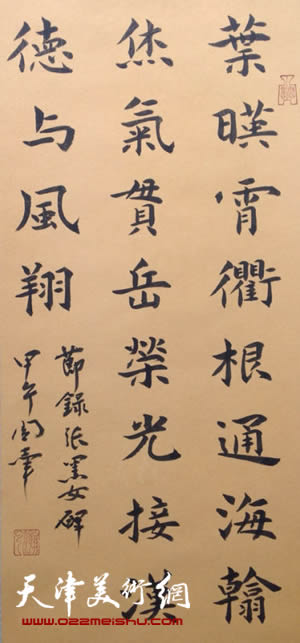 葉暎霄衢根通海翰
烋氣貫岳榮光接漢
德与風翔
節錄張黑女碑
甲午
天津美術網
www.022meishu.com